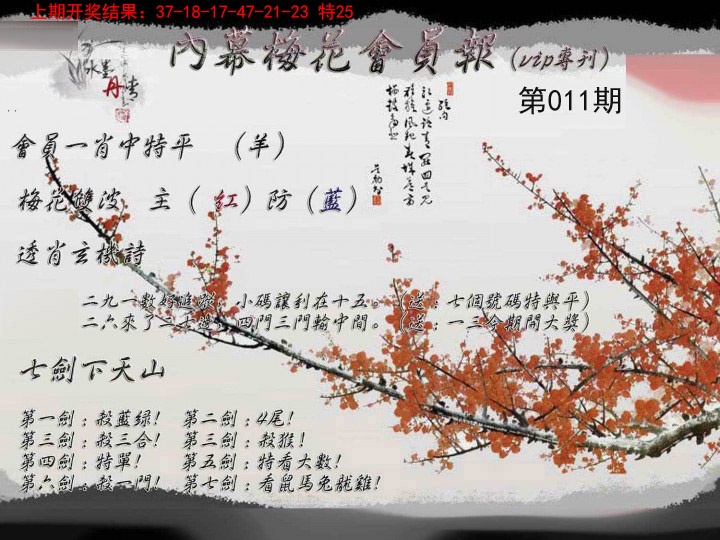 上期开奖结果：37-18-17-47-21-23 特25
內幕梅花會員報(vip專刊)
第011期
會員一肖中特平 （羊）
梅花雙波 主（紅）防（藍）
透肖玄機詩
二九一數好追蹤，小碼讓利在十五。（送：七個號碼特與平）
二六來了二七遊，四門三門輸中間。（送：一三今期開大獎）
七劍下天山
第一劍：殺藍绿！ 第二劍：4尾！
第三劍：殺三合！ 第三劍：殺猴！
第四劍：特單！ 第五劍：特看大數！
第六劍：殺一門！ 第七劍：看鼠馬兔龍雞！